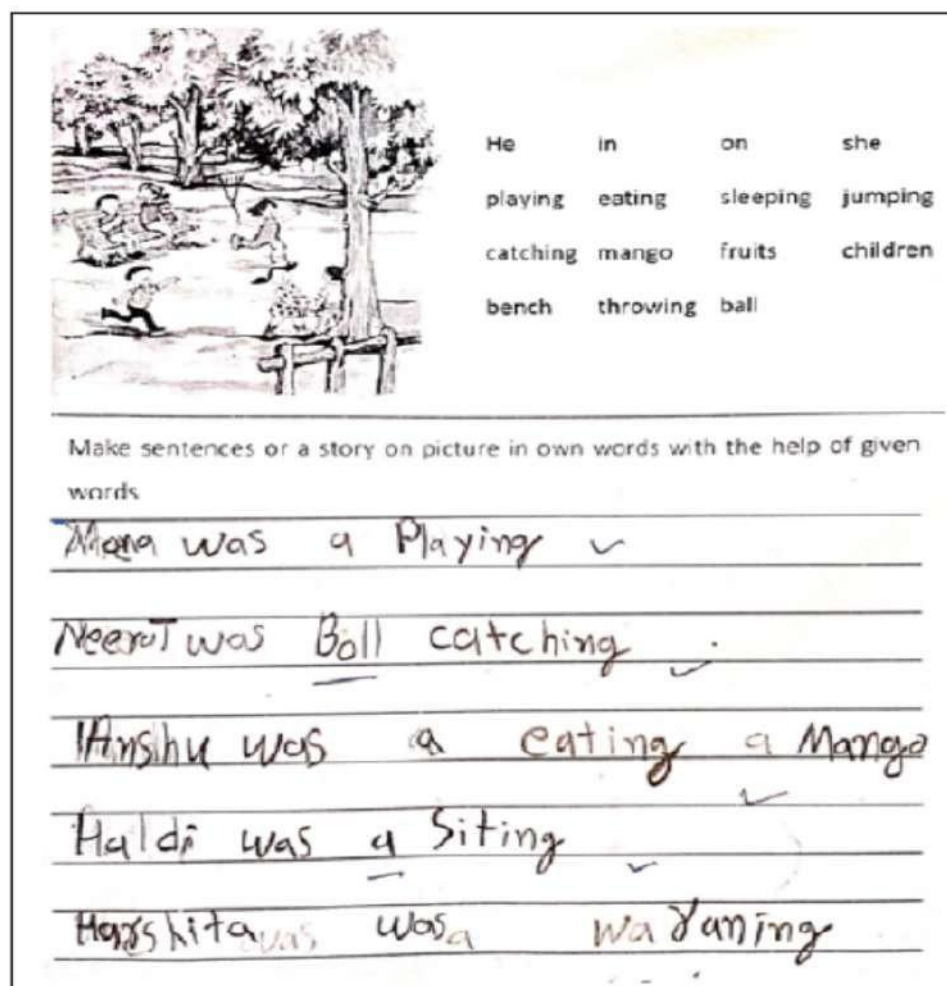 He in on she
playing eating sleeping jumping
catching mango fruits children
bench throwing ball
Make sentences or a story on picture in own words with the help of given
words
Mona was a Playing
Neerat was Boll catching
Anshu was a eating a Mango
Haldi was a Siting
Harshita was was a wa raning